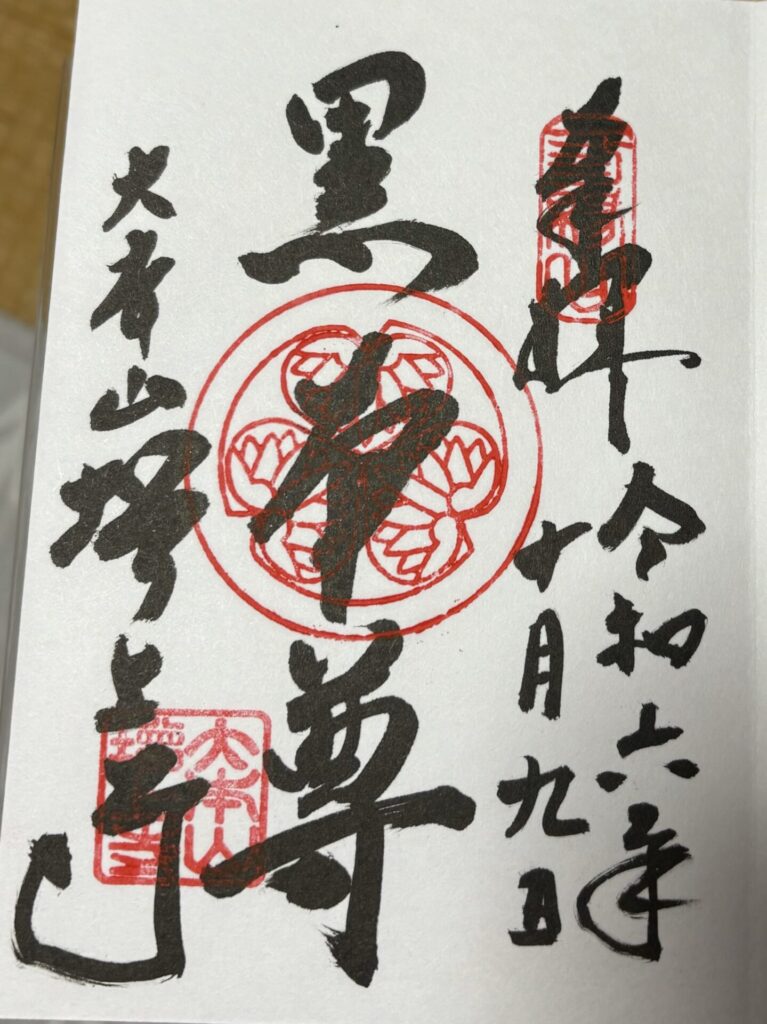 奉拝
令和六年
十月九日
黒本尊
大本山増上寺
大本山
増上寺